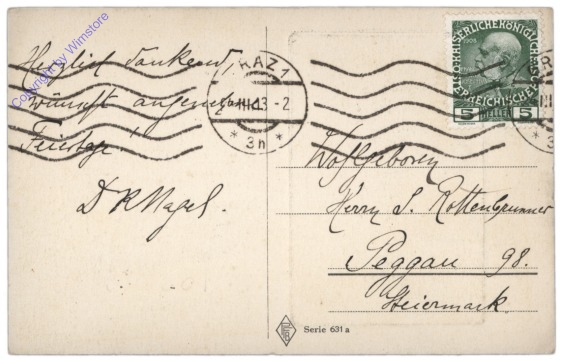 Herzlich dankend,
wünscht angenehme
Feiertage
Dr Nagel.
Copyright by Wimstore
GRAZ 1
III 13 - 2
* 3h *
KAISERLICHE KÖNIGLICHE ÖSTERREICHISCHE POST
1908
5 HELLER 5
Wohlgeboren
Herrn S. Rottenbrunner
Peggau 98.
Steiermark
Serie 631a